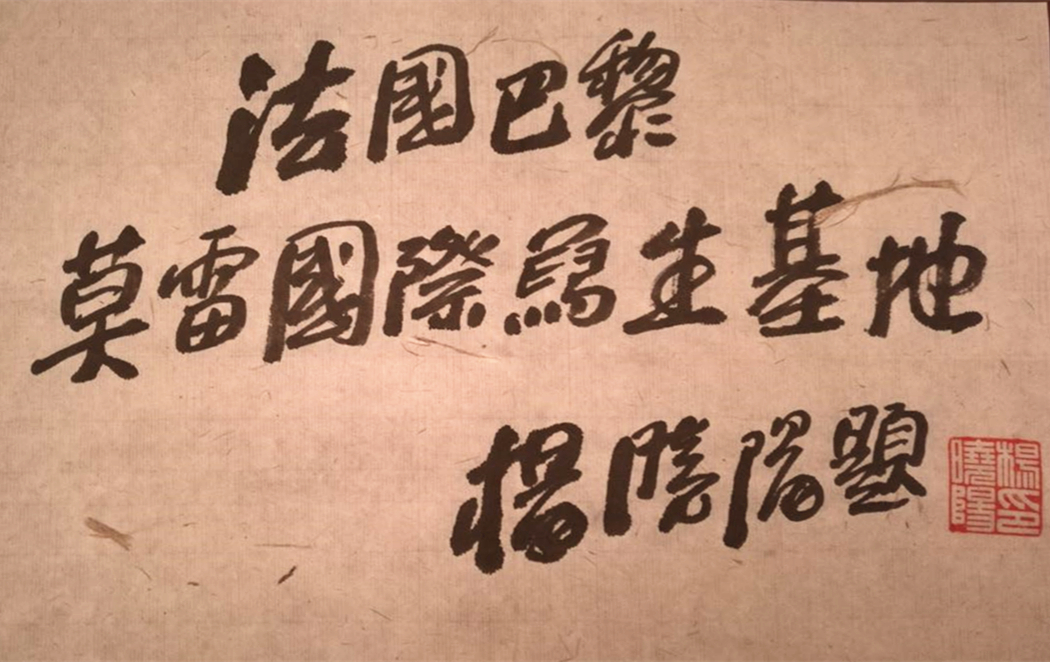 法國巴黎
莫雷國際寫生基地
楊曉陽題
楊曉陽印